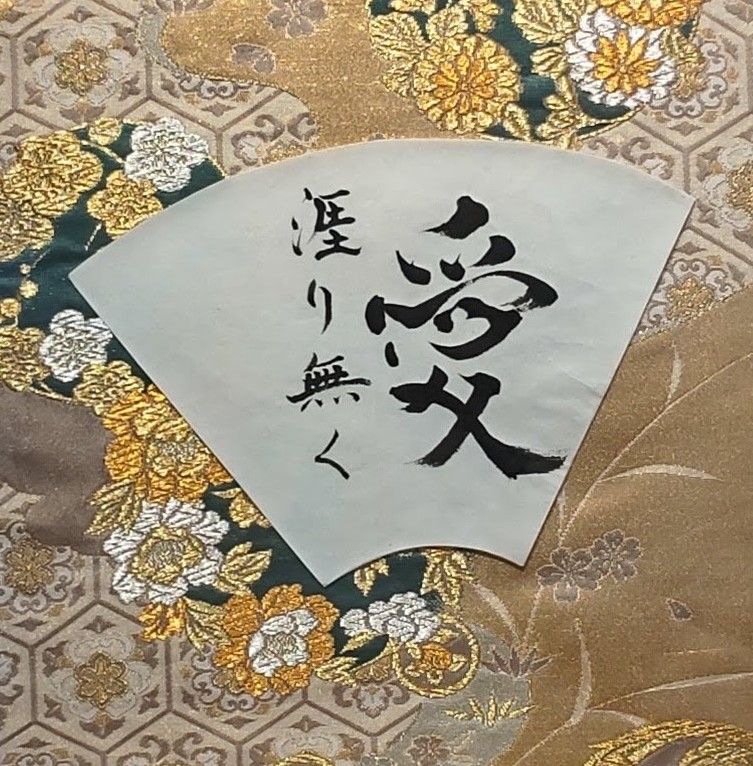 愛
涯り無く